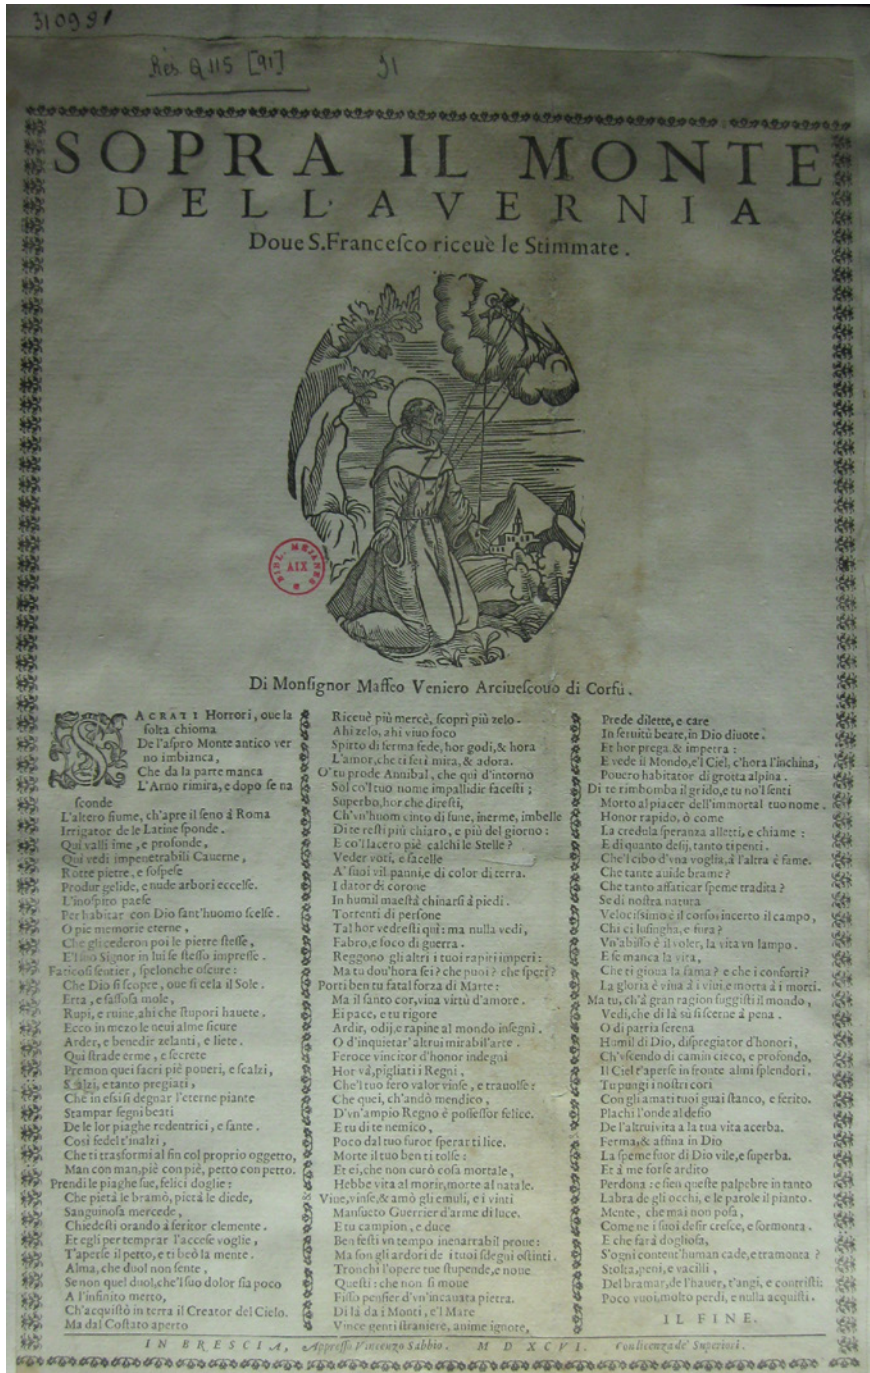 310991
Res. Q 115 [91]
91
SOPRA IL MONTE
DELL'AVERNIA
Doue S.Francesco riceuè le Stimmate.
BIBL. MEJANES
AIX
Di Monsignor Maffeo Veniero Arciuescouo di Corfù.
SACRATI Horrori, oue la
folta chioma
De l'aspro Monte antico ver
no imbianca,
Che da la parte manca
L'Arno rimira, e dopo se na
sconde
L'altero fiume, ch'apre il seno à Roma
Irrigator de le Latine sponde.
Qui valli ime, e profonde,
Qui vedi impenetrabili Cauerne,
Rotte pietre, e sospese
Produr gelide, e nude arbori eccelse.
L'inospito paese
Per habitar con Dio sant'huomo scelse.
O pie memorie eterne,
Che gli cederon poi le pietre stesse,
E'l suo Signor in lui se stesso impresse.
Faticosi sentier, spelonche oscure:
Che Dio si scopre, oue si cela il Sole.
Erta, e sassosa mole,
Rupi, e ruine, ahi che stupori hauete.
Ecco in mezo le neui alme sicure
Arder, e benedir zelanti, e liete.
Qui strade erme, e secrete
Premon quei sacri piè poueri, e scalzi,
Scalzi, e tanto pregiati,
Che in essi si degnar l'eterne piante
Stampar segni beati
De le lor piaghe redentrici, e sante.
Così fedel t'inalzi,
Che ti trasformi al fin col proprio oggetto,
Man con man, piè con piè, petto con petto.
Prendi le piaghe sue, felici doglie:
Che pietà le bramò, pietà le diede,
Sanguinosa mercede,
Chiedesti orando à feritor clemente.
Et egli per temprar l'accese voglie,
T'aperse il petto, e ti beò la mente.
Alma, che duol non sente,
Se non quel duol, che'l suo dolor sia poco
A l'infinito merto,
Ch'acquistò in terra il Creator del Cielo.
Ma dal Costato aperto
Riceuè più mercè, scoprì più zelo.
Ahi zelo, ahi viuo foco
Spirto di ferma fede, hor godi, & hora
L'amor, che ti ferì mira, & adora.
O' tu prode Annibal, che qui d'intorno
Sol co'l tuo nome impallidir facesti;
Superbo, hor che diresti,
Ch'vn'huom cinto di fune, inerme, imbelle
Di te resti più chiaro, e più del giorno:
E co'l lacero piè calchi le Stelle?
Veder voti, e facelle
A' suoi vil panni, e di color di terra.
I dator di corone
In humil maestà chinarsi à piedi.
Torrenti di persone
Tal hor vedresti quì: ma nulla vedi,
Fabro, e foco di guerra.
Reggono gli altri i tuoi rapiti imperi:
Ma tu dou'hora sei? che puoi? che speri?
Porti ben tu fatal forza di Marte:
Ma il santo cor, viua virtù d'amore.
Ei pace, e tu rigore
Ardir, odij, e rapine al mondo insegni.
O d'inquietar' altrui mirabil'arte.
Feroce vincitor d'honor indegni
Hor và, pigliati i Regni.
Che'l tuo fero valor vinse, e trauolse:
Che quei, ch'andò mendico,
D'vn'ampio Regno è possessor felice.
E tu di te nemico,
Poco dal tuo furor sperar ti lice.
Morte il tuo ben ti tolse:
Et ei, che non curò cosa mortale,
Hebbe vita al morir, morte al natale.
Viue, vinse, & amò gli emuli, e i vinti
Mansueto Guerrier d'arme di luce.
E tu campion, e duce
Ben festi vn tempo inenarrabil proue:
Ma son gli ardori de i tuoi sdegni estinti.
Tronchi l'opere tue stupende, e noue
Questi: che non si moue
Fisso pensier d'vn'incauata pietra.
Di là da i Monti, e'l Mare
Vince genti straniere, anime ignote,
Prede dilette, e care
In seruitù beate, in Dio diuote.
Et hor prega, & impetra:
E vede il Mondo, e'l Ciel, c'hora l'inchina,
Pouero habitator di grotta alpina.
Di te rimbomba il grido, e tu no'l senti
Morto al piacer dell'immortal tuo nome.
Honor rapido, ò come
La credula speranza alletti, e chiame:
E di quanto desij, tanto ti penti.
Che'l cibo d'vna voglia, à l'altra è fame.
Che tante auide brame?
Che tanto affaticar speme tradita?
Se di nostra natura
Velocissimo è il corso, incerto il campo,
Chi ci lusingha, e fura?
Vn'abisso è il voler, la vita vn lampo.
E se manca la vita,
Che ti gioua la fama? e che i conforti?
La gloria è viua à i viui, e morta à i morti.
Ma tu, ch'à gran ragion fuggisti il mondo,
Vedi, che di là sù si scerne à pena.
O di patria serena
Humil di Dio, dispregiator d'honori,
Ch'vscendo di camin cieco, e profondo,
Il Ciel t'aperse in fronte almi splendori.
Tu pungi i nostri cori
Con gli amati tuoi guai stanco, e ferito.
Plachi l'onde al desio
De l'altrui vita a la tua vita acerba.
Ferma, & affina in Dio
La speme fuor di Dio vile, e superba.
Et à me forse ardito
Perdona: e sien queste palpebre in tanto
Labra de gli occhi, e le parole il pianto.
Mente, che mai non posa,
Come ne i suoi desir cresce, e sormonta.
E che farà dogliosa,
S'ogni content'human cade, e tramonta?
Stolta, peni, e vacilli,
Del bramar, de l'hauer, t'angi, e contristi:
Poco vuoi, molto perdi, e nulla acquisti.
IL FINE.
IN BRESCIA, Appresso Vincenzo Sabbio. MDXCVI. Con licenza de' Superiori.